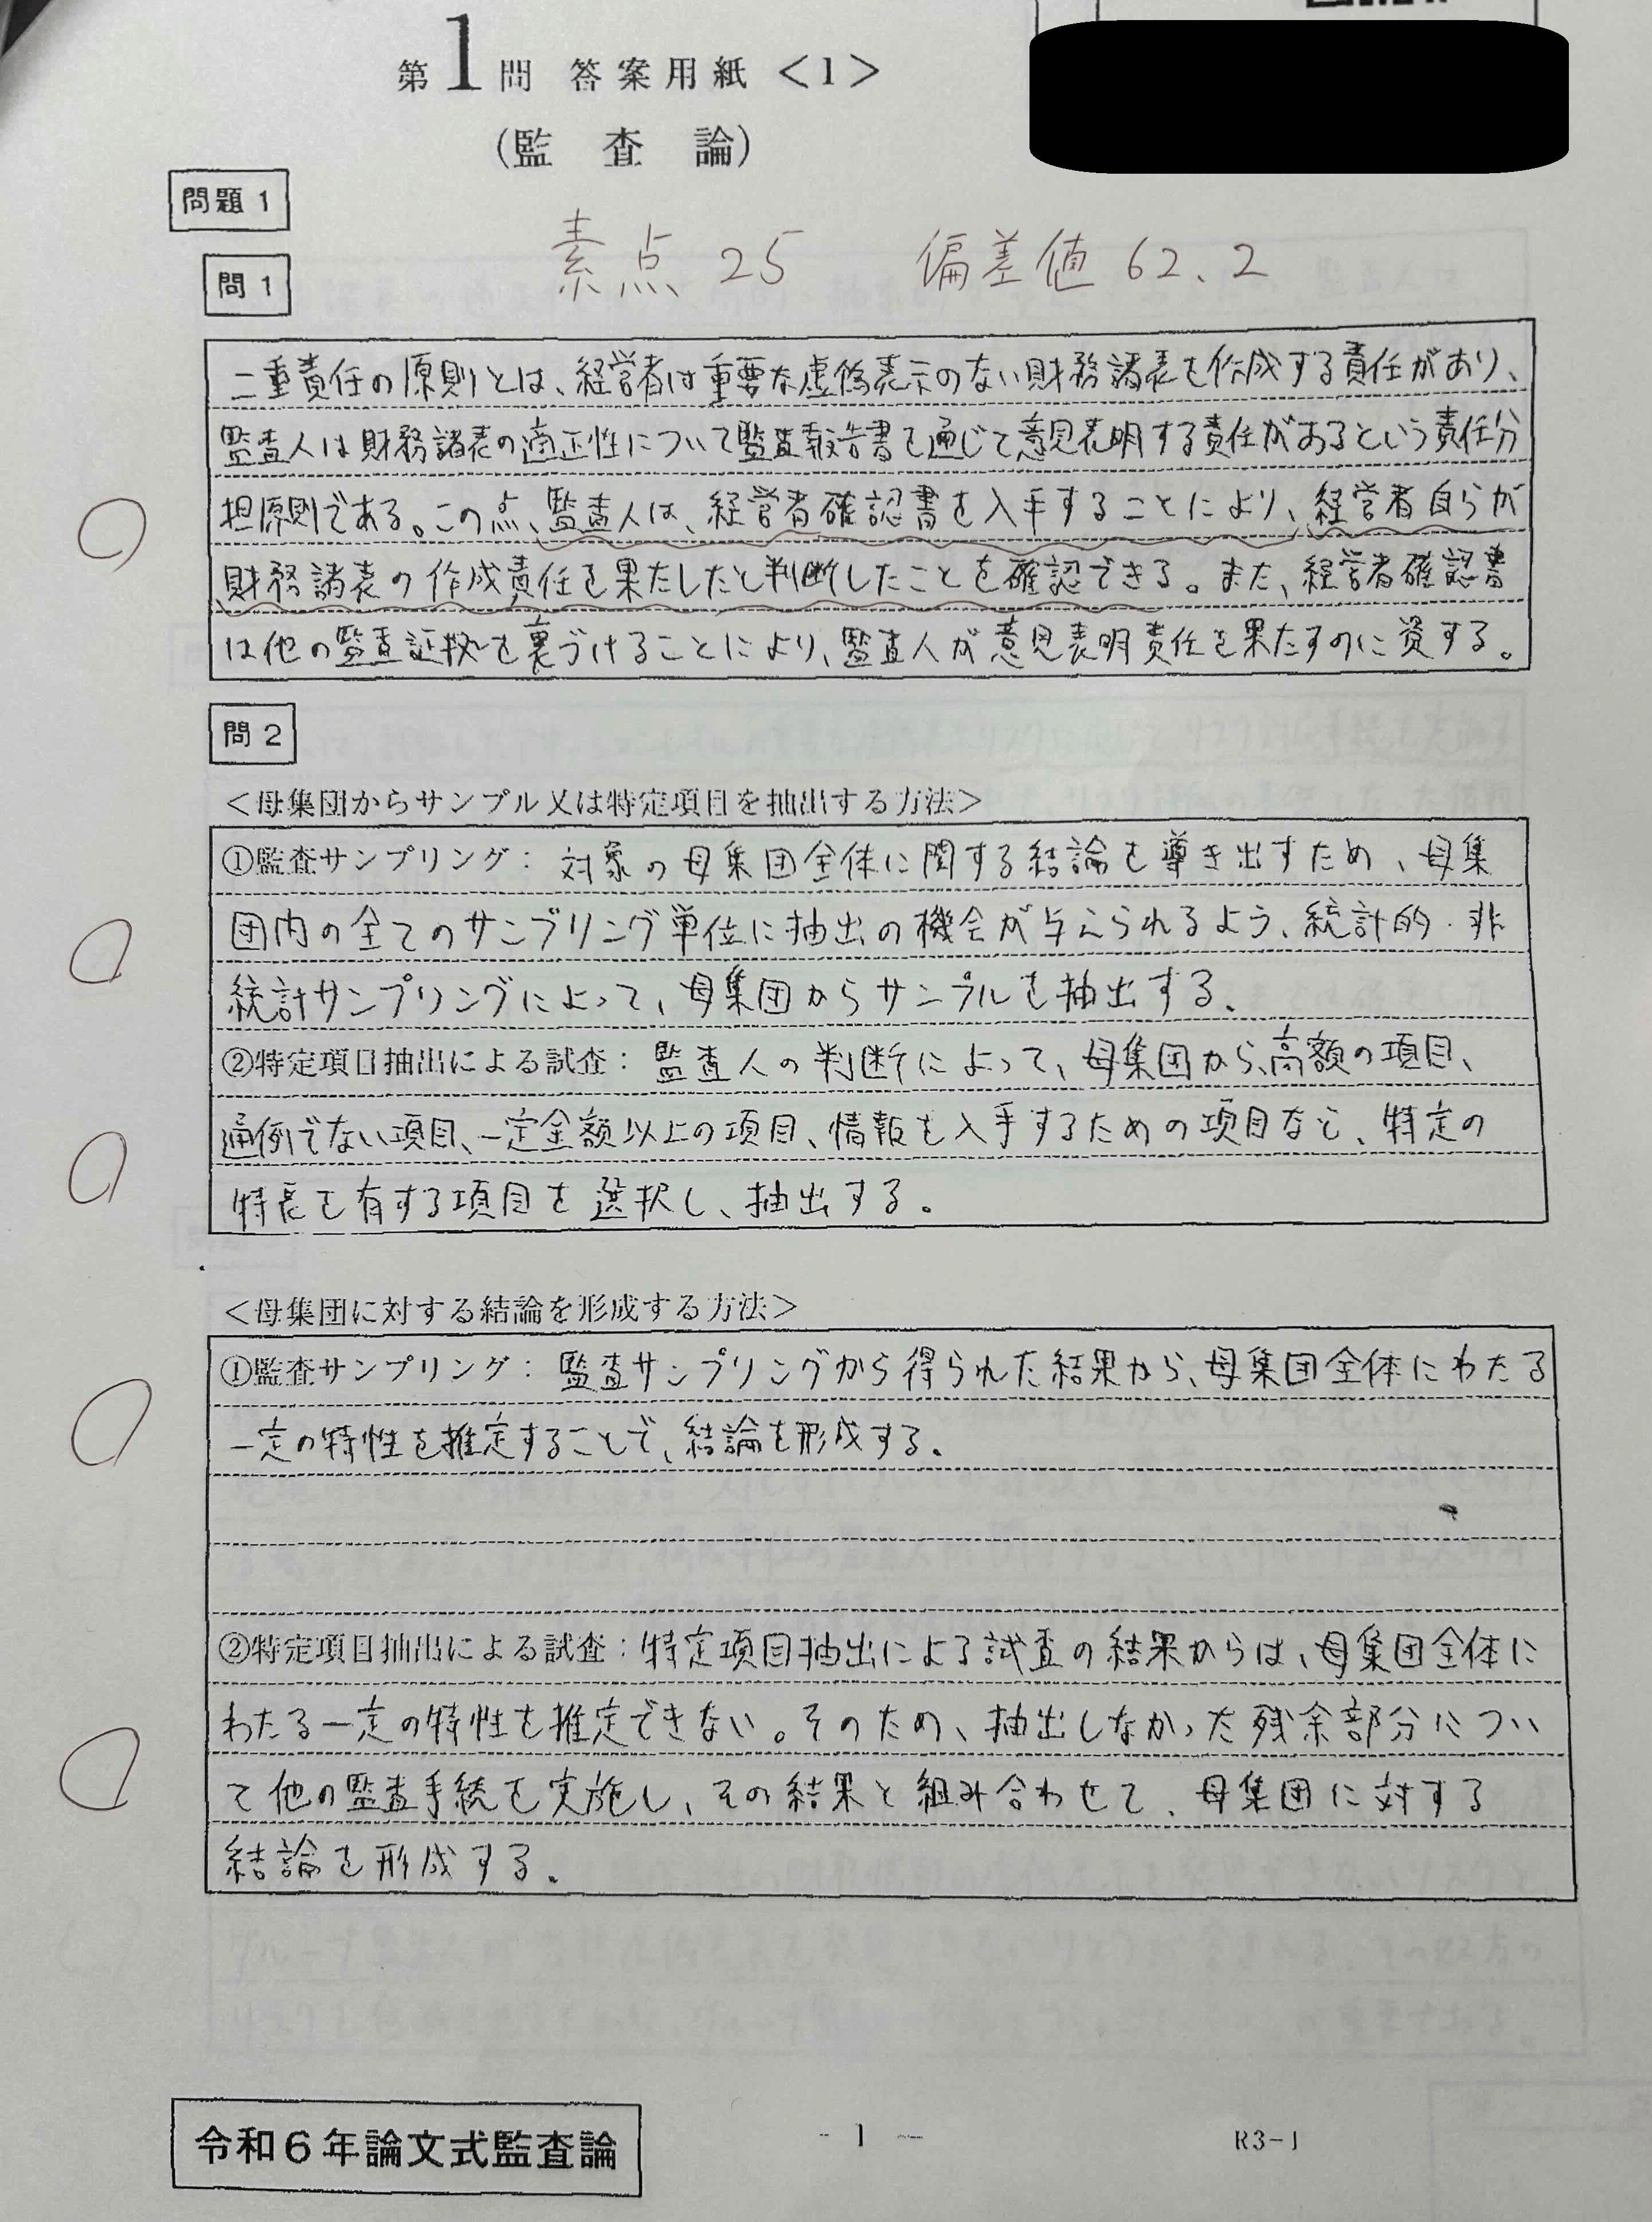 第1問 答案用紙<1>
(監査論)
問題1
素点 25 偏差値 62.2
問1
二重責任の原則とは、経営者は重要な虚偽表示のない財務諸表を作成する責任があり、
監査人は財務諸表の適正性について監査報告書を通じて意見表明する責任があるという責任分
担原則である。この点、監査人は、経営者確認書を入手することにより、経営者自らが
財務諸表の作成責任を果たしたと判断したことを確認できる。また、経営者確認書
は他の監査証拠を裏づけることにより、監査人が意見表明責任を果たすのに資する。
問2
<母集団からサンプル又は特定項目を抽出する方法>
①監査サンプリング:対象の母集団全体に関する結論を導き出すため、母集
団内の全てのサンプリング単位に抽出の機会が与えられるよう、統計的・非
統計サンプリングによって、母集団からサンプルを抽出する。
②特定項目抽出による試査:監査人の判断によって、母集団から、高額の項目、
通例でない項目、一定金額以上の項目、情報を入手するための項目など、特定の
特長を有する項目を選択し、抽出する。
<母集団に対する結論を形成する方法>
①監査サンプリング:監査サンプリングから得られた結果から、母集団全体にわたる
一定の特性を推定することで、結論を形成する。
②特定項目抽出による試査:特定項目抽出による試査の結果からは、母集団全体に
わたる一定の特性を推定できない。そのため、抽出しなかった残余部分につい
て他の監査手続を実施し、その結果と組み合わせて、母集団に対する
結論を形成する。
令和6年論文式監査論
- 1 -
R3-1